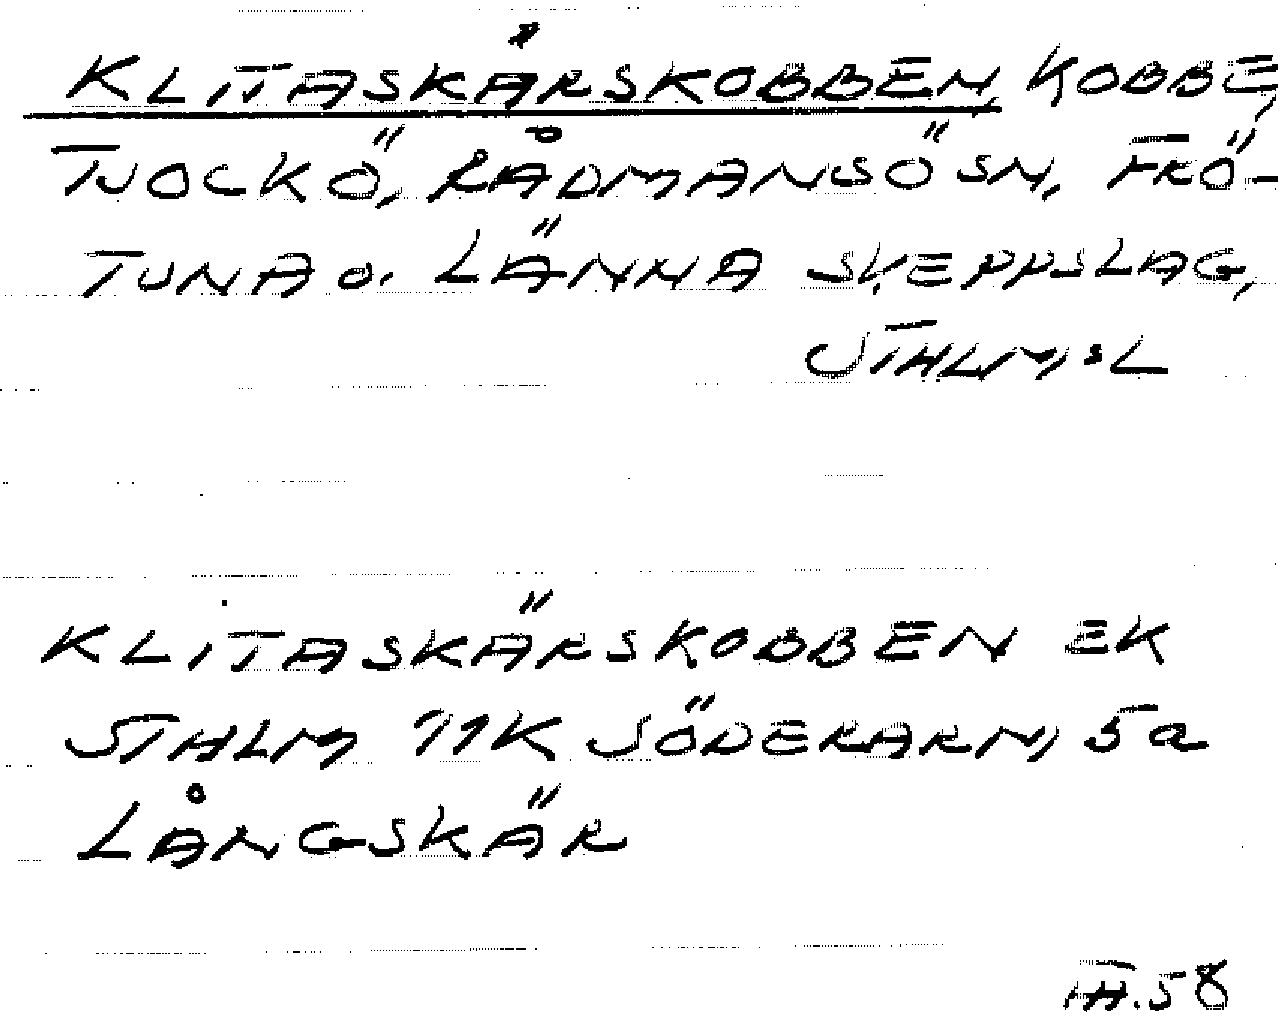 KLITASKÄRSKOBBEN, KOBBE,
TJOCKÖ, RÅDMANSÖ SN, FRÖ-
TUNA O. LÄNNA SKEPPSLAG,
STHLM:S L
KLITASKÄRSKOBBEN EK
STHLM 11K SÖDERARM, 5a
LÅNGSKÄR